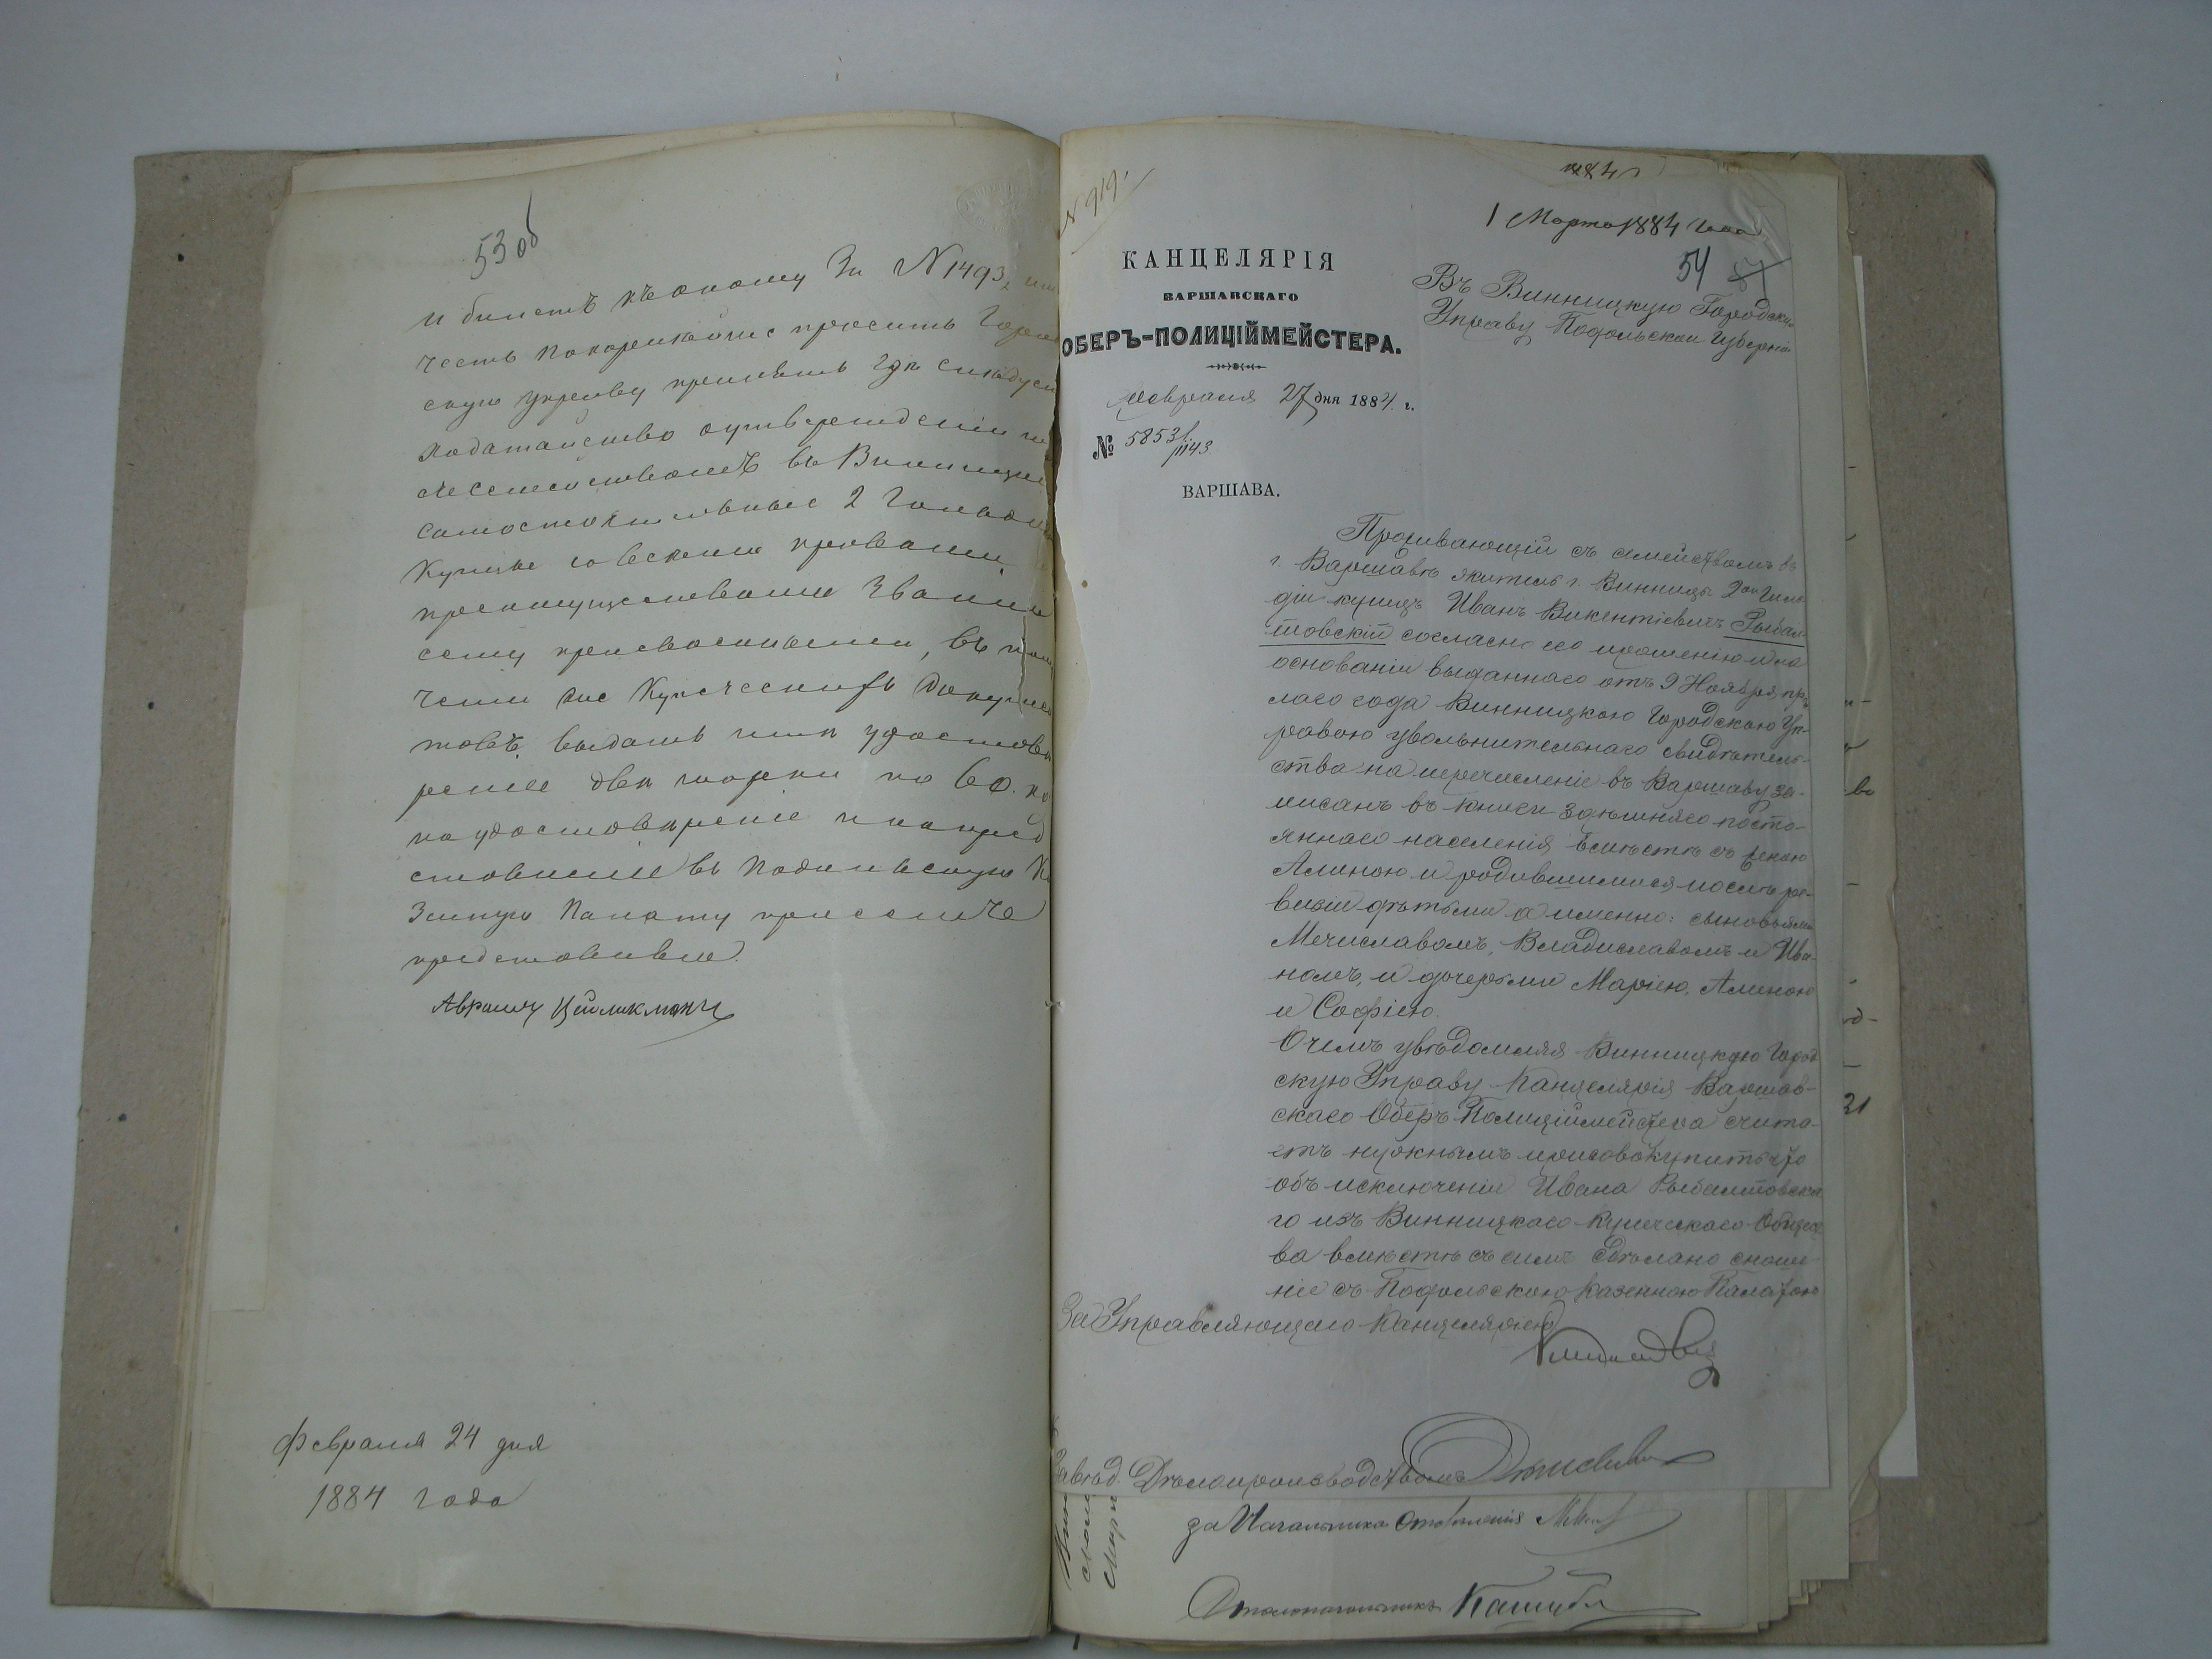 53 об
и билетъ къ оному За № 1493,
честь покорнейше просить Город
скую управу принять гдѣ слѣдуе
ходатайство о утверждении
семействомъ въ Винницкие
самостоятельные 2 Гильдии
Купцы со всеми правами
преимуществами Званию
сему присвоенными, въ полу
чении же Купеческихъ Докумен
товъ выдать мнѣ удостове
рение двѣ марки по 60. ко
на удостоверение и на пред
ставление въ Подольскую Ка
Зенную Палату при семъ
представляю.
Авраамъ
Февраля 24 дня
1884 года
№ 919.
1 Марта 1884 года
54
КАНЦЕЛЯРІЯ
ВАРШАВСКАГО
ОБЕРЪ-ПОЛИЦІЙМЕЙСТЕРА.
Февраля 27 дня 1884 г.
№ 5853/1143
ВАРШАВА.
Въ Винницкую Городскую
Управу Подольской Губерніи
Проживающій съ семействомъ въ
г. Варшавѣ житель г. Винницы 2ой Гиль
діи купецъ Иванъ Викентіевичъ Рыбал
товскій согласно его прошенію и на
основаніи выданнаго отъ 9 Ноября пр.
лаго года Винницкою Городскою Уп-
равою увольнительнаго свидѣтель-
ства на перечисленіе въ Варшаву за-
писанъ въ книги здѣшняго посто-
яннаго населенія вмѣстѣ съ женою
Алиною и родившимися послѣ ре-
визіи дѣтьми а именно: сыновьями
Мечиславомъ, Владиславомъ и Ива-
номъ, и дочерьми Маріею, Алиною
и Софіею.
О чемъ увѣдомляя Винницкую Город
скую Управу Канцелярія Варшав-
скаго Оберъ Полиціймейстера счита-
етъ нужнымъ присовокупить что
объ исключеніи Ивана Рыбалтовска
го изъ Винницкаго Купеческаго Общест
ва вмѣстѣ съ симъ сдѣлано сноше-
ніе съ Подольскою Казенною Палатою
За Управляющаго Канцеляріею
Завѣд. Дѣлопроизводствомъ
за Начальника Отдѣленія
Столоначальникъ